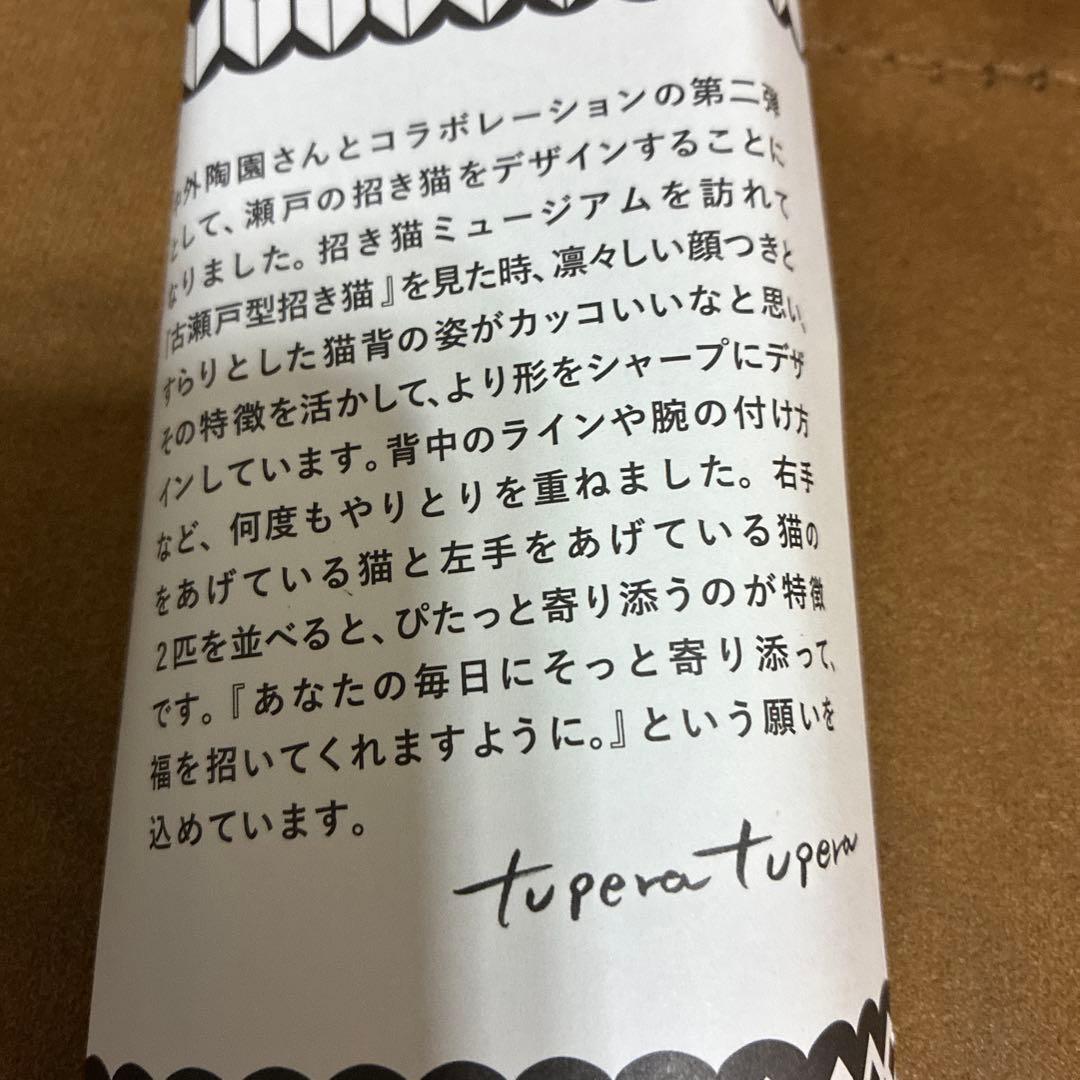 中外陶園さんとコラボレーションの第二弾
として、瀬戸の招き猫をデザインすることに
なりました。招き猫ミュージアムを訪れて
『古瀬戸型招き猫』を見た時、凛々しい顔つきと
すらりとした猫背の姿がカッコいいなと思い、
その特徴を活かして、より形をシャープにデザ
インしています。背中のラインや腕の付け方
など、何度もやりとりを重ねました。右手
をあげている猫と左手をあげている猫の
2匹を並べると、ぴたっと寄り添うのが特徴
です。『あなたの毎日にそっと寄り添って、
福を招いてくれますように。』という願いを
込めています。
tupera tupera